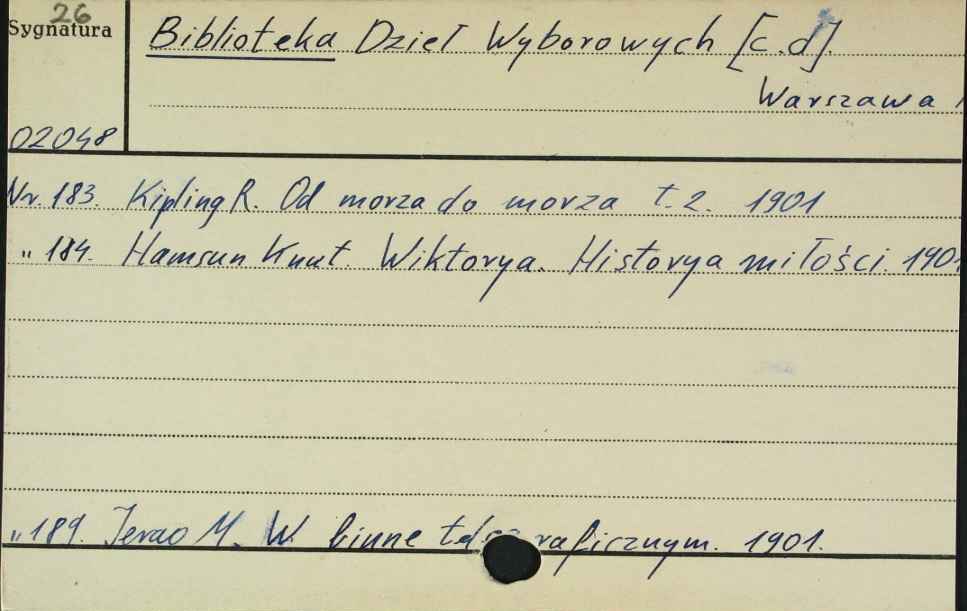 26
Sygnatura
Biblioteka Dzieł Wyborowych [c.d].
Warszawa
02048
Nr. 183. Kipling R. Od morza do morza t. 2. 1901
" 184. Hamsun Knut. Wiktorya. Historya miłości. 1901
" 189. Jerao M. W biurze telegraficznym. 1901.